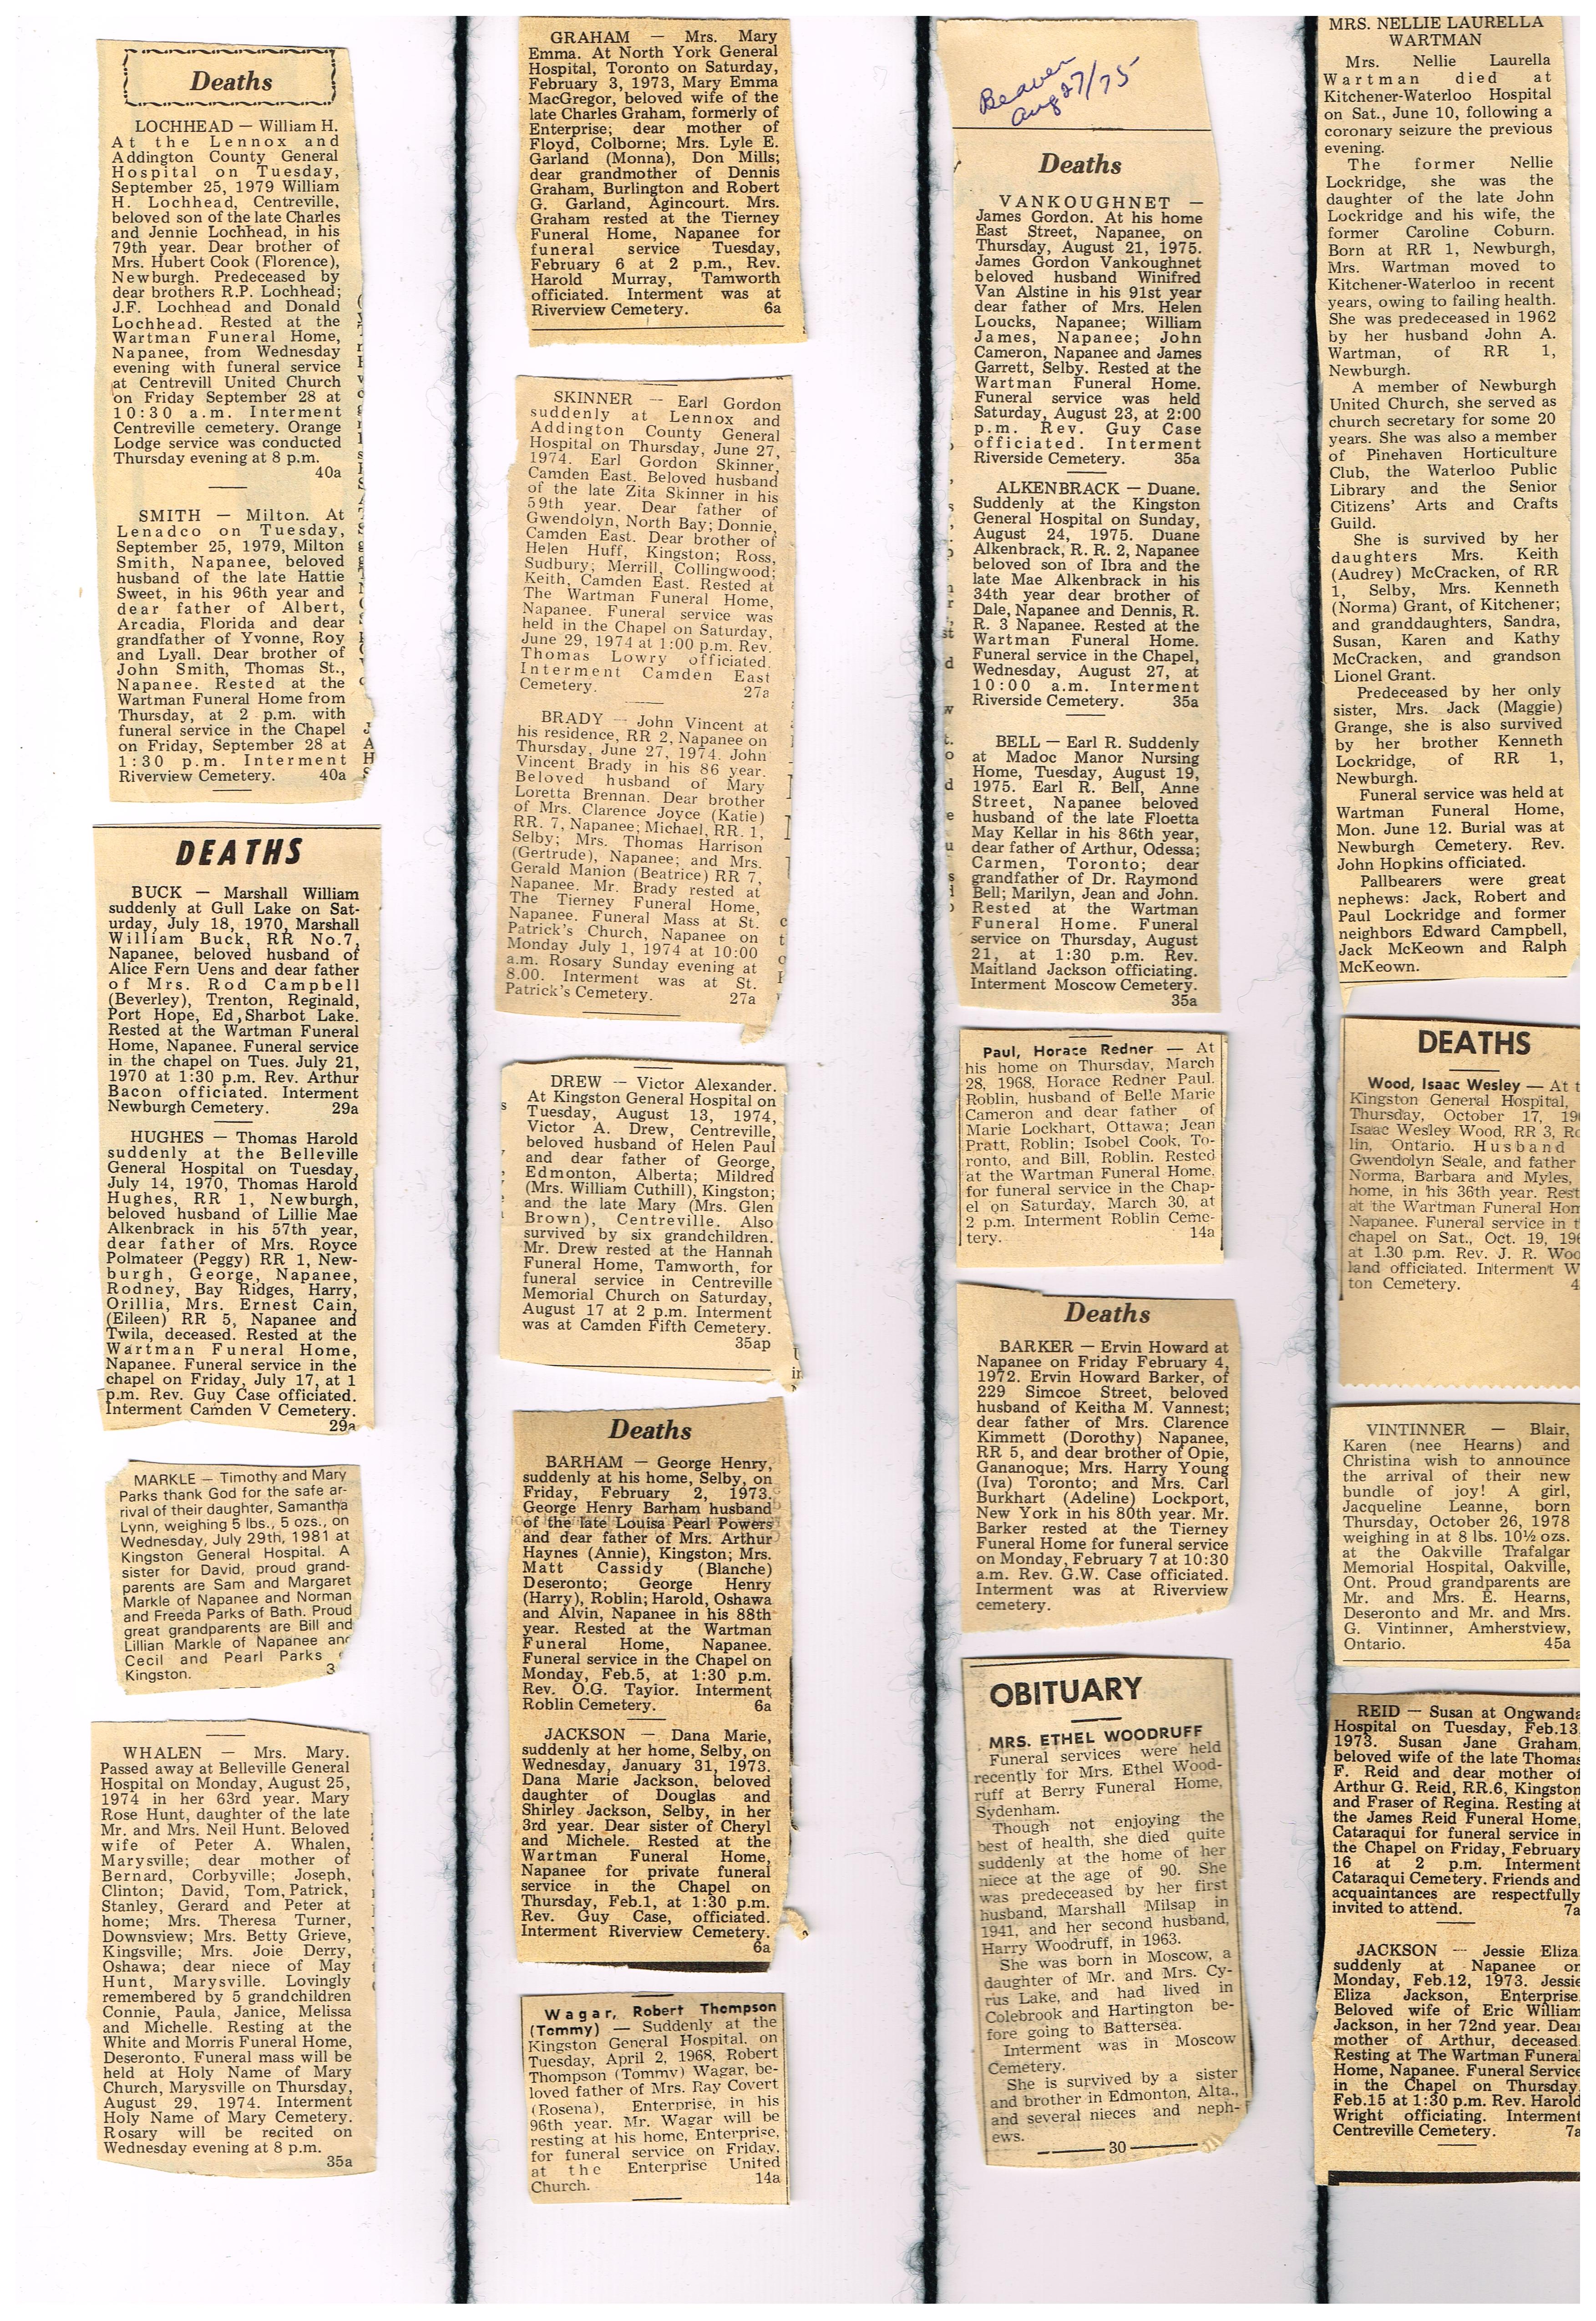 Deaths
LOCHHEAD — William H.
At the Lennox and
Addington County General
Hospital on Tuesday,
September 25, 1979 William
H. Lochhead, Centreville,
beloved son of the late Charles
and Jennie Lochhead, in his
79th year. Dear brother of
Mrs. Hubert Cook (Florence),
Newburgh. Predeceased by
dear brothers R.P. Lochhead;
J.F. Lochhead and Donald
Lochhead. Rested at the
Wartman Funeral Home,
Napanee, from Wednesday
evening with funeral service
at Centrevill United Church
on Friday September 28 at
10:30 a.m. Interment
Centreville cemetery. Orange
Lodge service was conducted
Thursday evening at 8 p.m.
40a
SMITH — Milton. At
Lenadco on Tuesday,
September 25, 1979, Milton
Smith, Napanee, beloved
husband of the late Hattie
Sweet, in his 96th year and
dear father of Albert,
Arcadia, Florida and dear
grandfather of Yvonne, Roy
and Lyall. Dear brother of
John Smith, Thomas St.,
Napanee. Rested at the
Wartman Funeral Home from
Thursday, at 2 p.m. with
funeral service in the Chapel
on Friday, September 28 at
1:30 p.m. Interment
Riverview Cemetery. 40a
DEATHS
BUCK — Marshall William
suddenly at Gull Lake on Sat-
urday, July 18, 1970, Marshall
William Buck, RR No.7,
Napanee, beloved husband of
Alice Fern Uens and dear father
of Mrs. Rod Campbell
(Beverley), Trenton, Reginald,
Port Hope, Ed, Sharbot Lake.
Rested at the Wartman Funeral
Home, Napanee. Funeral service
in the chapel on Tues. July 21,
1970 at 1:30 p.m. Rev. Arthur
Bacon officiated. Interment
Newburgh Cemetery. 29a
HUGHES — Thomas Harold
suddenly at the Belleville
General Hospital on Tuesday,
July 14, 1970, Thomas Harold
Hughes, RR 1, Newburgh,
beloved husband of Lillie Mae
Alkenbrack in his 57th year,
dear father of Mrs. Royce
Polmateer (Peggy) RR 1, New-
burgh, George, Napanee,
Rodney, Bay Ridges, Harry,
Orillia, Mrs. Ernest Cain,
(Eileen) RR 5, Napanee and
Twila, deceased. Rested at the
Wartman Funeral Home,
Napanee. Funeral service in the
chapel on Friday, July 17, at 1
p.m. Rev. Guy Case officiated.
Interment Camden V Cemetery.
29a
MARKLE — Timothy and Mary
Parks thank God for the safe ar-
rival of their daughter, Samantha
Lynn, weighing 5 lbs., 5 ozs., on
Wednesday, July 29th, 1981 at
Kingston General Hospital. A
sister for David, proud grand-
parents are Sam and Margaret
Markle of Napanee and Norman
and Freeda Parks of Bath. Proud
great grandparents are Bill and
Lillian Markle of Napanee and
Cecil and Pearl Parks
Kingston. 3
WHALEN — Mrs. Mary.
Passed away at Belleville General
Hospital on Monday, August 25,
1974 in her 63rd year. Mary
Rose Hunt, daughter of the late
Mr. and Mrs. Neil Hunt. Beloved
wife of Peter A. Whalen,
Marysville; dear mother of
Bernard, Corbyville; Joseph,
Clinton; David, Tom, Patrick,
Stanley, Gerard and Peter at
home; Mrs. Theresa Turner,
Downsview; Mrs. Betty Grieve,
Kingsville; Mrs. Joie Derry,
Oshawa; dear niece of May
Hunt, Marysville. Lovingly
remembered by 5 grandchildren
Connie, Paula, Janice, Melissa
and Michelle. Resting at the
White and Morris Funeral Home,
Deseronto. Funeral mass will be
held at Holy Name of Mary
Church, Marysville on Thursday,
August 29, 1974. Interment
Holy Name of Mary Cemetery.
Rosary will be recited on
Wednesday evening at 8 p.m.
35a
GRAHAM — Mrs. Mary
Emma. At North York General
Hospital, Toronto on Saturday,
February 3, 1973, Mary Emma
MacGregor, beloved wife of the
late Charles Graham, formerly of
Enterprise; dear mother of
Floyd, Colborne; Mrs. Lyle E.
Garland (Monna), Don Mills;
dear grandmother of Dennis
Graham, Burlington and Robert
G. Garland, Agincourt. Mrs.
Graham rested at the Tierney
Funeral Home, Napanee for
funeral service Tuesday,
February 6 at 2 p.m., Rev.
Harold Murray, Tamworth
officiated. Interment was at
Riverview Cemetery. 6a
SKINNER — Earl Gordon
suddenly at Lennox and
Addington County General
Hospital on Thursday, June 27,
1974. Earl Gordon Skinner,
Camden East. Beloved husband
of the late Zita Skinner in his
59th year. Dear father of
Gwendolyn, North Bay; Donnie,
Camden East. Dear brother of
Helen Huff, Kingston; Ross,
Sudbury; Merrill, Collingwood;
Keith, Camden East. Rested at
The Wartman Funeral Home,
Napanee. Funeral service was
held in the Chapel on Saturday,
June 29, 1974 at 1:00 p.m. Rev.
Thomas Lowry officiated.
Interment Camden East
Cemetery. 27a
BRADY — John Vincent at
his residence, RR 2, Napanee on
Thursday, June 27, 1974. John
Vincent Brady in his 86 year.
Beloved husband of Mary
Loretta Brennan. Dear brother
of Mrs. Clarence Joyce (Katie)
RR. 7, Napanee; Michael, RR. 1,
Selby; Mrs. Thomas Harrison
(Gertrude), Napanee; and Mrs.
Gerald Manion (Beatrice) RR 7,
Napanee. Mr. Brady rested at
The Tierney Funeral Home,
Napanee. Funeral Mass at St.
Patrick's Church, Napanee on
Monday July 1, 1974 at 10:00
a.m. Rosary Sunday evening at
8.00. Interment was at St.
Patrick's Cemetery. 27a
DREW — Victor Alexander.
At Kingston General Hospital on
Tuesday, August 13, 1974,
Victor A. Drew, Centreville,
beloved husband of Helen Paul
and dear father of George,
Edmonton, Alberta; Mildred
(Mrs. William Cuthill), Kingston;
and the late Mary (Mrs. Glen
Brown), Centreville. Also
survived by six grandchildren.
Mr. Drew rested at the Hannah
Funeral Home, Tamworth, for
funeral service in Centreville
Memorial Church on Saturday,
August 17 at 2 p.m. Interment
was at Camden Fifth Cemetery.
35ap
Deaths
BARHAM — George Henry,
suddenly at his home, Selby, on
Friday, February 2, 1973.
George Henry Barham husband
of the late Louisa Pearl Powers
and dear father of Mrs. Arthur
Haynes (Annie), Kingston; Mrs.
Matt Cassidy (Blanche)
Deseronto; George Henry
(Harry), Roblin; Harold, Oshawa
and Alvin, Napanee in his 88th
year. Rested at the Wartman
Funeral Home, Napanee.
Funeral service in the Chapel on
Monday, Feb.5, at 1:30 p.m.
Rev. O.G. Taylor. Interment
Roblin Cemetery. 6a
JACKSON — Dana Marie,
suddenly at her home, Selby, on
Wednesday, January 31, 1973.
Dana Marie Jackson, beloved
daughter of Douglas and
Shirley Jackson, Selby, in her
3rd year. Dear sister of Cheryl
and Michele. Rested at the
Wartman Funeral Home,
Napanee for private funeral
service in the Chapel on
Thursday, Feb.1, at 1:30 p.m.
Rev. Guy Case, officiated.
Interment Riverview Cemetery.
6a
Wagar, Robert Thompson
(Tommy) — Suddenly at the
Kingston General Hospital, on
Tuesday, April 2, 1968, Robert
Thompson (Tommy) Wagar, be-
loved father of Mrs. Ray Covert
(Rosena), Enterprise, in his
96th year. Mr. Wagar will be
resting at his home, Enterprise,
for funeral service on Friday,
at the Enterprise United
Church. 14a
Beaver
Aug 27/75
Deaths
VANKOUGHNET —
James Gordon. At his home
East Street, Napanee, on
Thursday, August 21, 1975.
James Gordon Vankoughnet
beloved husband Winifred
Van Alstine in his 91st year
dear father of Mrs. Helen
Loucks, Napanee; William
James, Napanee; John
Cameron, Napanee and James
Garrett, Selby. Rested at the
Wartman Funeral Home.
Funeral service was held
Saturday, August 23, at 2:00
p.m. Rev. Guy Case
officiated. Interment
Riverside Cemetery. 35a
ALKENBRACK — Duane.
Suddenly at the Kingston
General Hospital on Sunday,
August 24, 1975. Duane
Alkenbrack, R. R. 2, Napanee
beloved son of Ibra and the
late Mae Alkenbrack in his
34th year dear brother of
Dale, Napanee and Dennis, R.
R. 3 Napanee. Rested at the
Wartman Funeral Home.
Funeral service in the Chapel,
Wednesday, August 27, at
10:00 a.m. Interment
Riverside Cemetery. 35a
BELL — Earl R. Suddenly
at Madoc Manor Nursing
Home, Tuesday, August 19,
1975. Earl R. Bell, Anne
Street, Napanee beloved
husband of the late Floetta
May Kellar in his 86th year,
dear father of Arthur, Odessa;
Carmen, Toronto; dear
grandfather of Dr. Raymond
Bell; Marilyn, Jean and John.
Rested at the Wartman
Funeral Home. Funeral
service on Thursday, August
21, at 1:30 p.m. Rev.
Maitland Jackson officiating.
Interment Moscow Cemetery.
35a
Paul, Horace Redner — At
his home on Thursday, March
28, 1968, Horace Redner Paul.
Roblin, husband of Belle Marie
Cameron and dear father of
Marie Lockhart, Ottawa; Jean
Pratt, Roblin; Isobel Cook, To-
ronto, and Bill, Roblin. Rested
at the Wartman Funeral Home,
for funeral service in the Chap-
el on Saturday, March 30, at
2 p.m. Interment Roblin Ceme-
tery. 14a
Deaths
BARKER — Ervin Howard at
Napanee on Friday February 4,
1972. Ervin Howard Barker, of
229 Simcoe Street, beloved
husband of Keitha M. Vannest;
dear father of Mrs. Clarence
Kimmett (Dorothy) Napanee,
RR 5, and dear brother of Opie,
Gananoque; Mrs. Harry Young
(Iva) Toronto; and Mrs. Carl
Burkhart (Adeline) Lockport,
New York in his 80th year. Mr.
Barker rested at the Tierney
Funeral Home for funeral service
on Monday, February 7 at 10:30
a.m. Rev. G.W. Case officiated.
Interment was at Riverview
cemetery.
OBITUARY
MRS. ETHEL WOODRUFF
Funeral services were held
recently for Mrs. Ethel Wood-
ruff at Berry Funeral Home,
Sydenham.
Though not enjoying the
best of health, she died quite
suddenly at the home of her
niece at the age of 90. She
was predeceased by her first
husband, Marshall Milsap in
1941, and her second husband,
Harry Woodruff, in 1963.
She was born in Moscow, a
daughter of Mr. and Mrs. Cy-
rus Lake, and had lived in
Colebrook and Hartington be-
fore going to Battersea.
Interment was in Moscow
Cemetery.
She is survived by a sister
and brother in Edmonton, Alta.,
and several nieces and neph-
ews.
— 30 —
MRS. NELLIE LAURELLA
WARTMAN
Mrs. Nellie Laurella
Wartman died at
Kitchener-Waterloo Hospital
on Sat., June 10, following a
coronary seizure the previous
evening.
The former Nellie
Lockridge, she was the
daughter of the late John
Lockridge and his wife, the
former Caroline Coburn.
Born at RR 1, Newburgh,
Mrs. Wartman moved to
Kitchener-Waterloo in recent
years, owing to failing health.
She was predeceased in 1962
by her husband John A.
Wartman, of RR 1,
Newburgh.
A member of Newburgh
United Church, she served as
church secretary for some 20
years. She was also a member
of Pinehaven Horticulture
Club, the Waterloo Public
Library and the Senior
Citizens' Arts and Crafts
Guild.
She is survived by her
daughters Mrs. Keith
(Audrey) McCracken, of RR
1, Selby, Mrs. Kenneth
(Norma) Grant, of Kitchener;
and granddaughters, Sandra,
Susan, Karen and Kathy
McCracken, and grandson
Lionel Grant.
Predeceased by her only
sister, Mrs. Jack (Maggie)
Grange, she is also survived
by her brother Kenneth
Lockridge, of RR 1,
Newburgh.
Funeral service was held at
Wartman Funeral Home,
Mon. June 12. Burial was at
Newburgh Cemetery. Rev.
John Hopkins officiated.
Pallbearers were great
nephews: Jack, Robert and
Paul Lockridge and former
neighbors Edward Campbell,
Jack McKeown and Ralph
McKeown.
DEATHS
Wood, Isaac Wesley — At
Kingston General Hospital,
Thursday, October 17,
Isaac Wesley Wood, RR 3, Ro
lin, Ontario. Husband
Gwendolyn Seale, and father
Norma, Barbara and Myles,
home, in his 36th year. Rest
at the Wartman Funeral Hom
Napanee. Funeral service in
chapel on Sat., Oct. 19, 196
at 1.30 p.m. Rev. J. R. Woo
land officiated. Interment W
ton Cemetery. 4
VINTINNER — Blair,
Karen (nee Hearns) and
Christina wish to announce
the arrival of their new
bundle of joy! A girl,
Jacqueline Leanne, born
Thursday, October 26, 1978
weighing in at 8 lbs. 10½ ozs.
at the Oakville Trafalgar
Memorial Hospital, Oakville,
Ont. Proud grandparents are
Mr. and Mrs. E. Hearns,
Deseronto and Mr. and Mrs.
G. Vintinner, Amherstview,
Ontario. 45a
REID — Susan at Ongwanda
Hospital on Tuesday, Feb.13,
1973. Susan Jane Graham,
beloved wife of the late Thomas
F. Reid and dear mother of
Arthur G. Reid, RR.6, Kingston
and Fraser of Regina. Resting at
the James Reid Funeral Home,
Cataraqui for funeral service in
the Chapel on Friday, February
16 at 2 p.m. Interment
Cataraqui Cemetery. Friends and
acquaintances are respectfully
invited to attend. 7a
JACKSON — Jessie Eliza,
suddenly at Napanee on
Monday, Feb.12, 1973. Jessie
Eliza Jackson, Enterprise.
Beloved wife of Eric William
Jackson, in her 72nd year. Dear
mother of Arthur, deceased.
Resting at The Wartman Funeral
Home, Napanee. Funeral Service
in the Chapel on Thursday,
Feb.15 at 1:30 p.m. Rev. Harold
Wright officiating. Interment
Centreville Cemetery. 7a